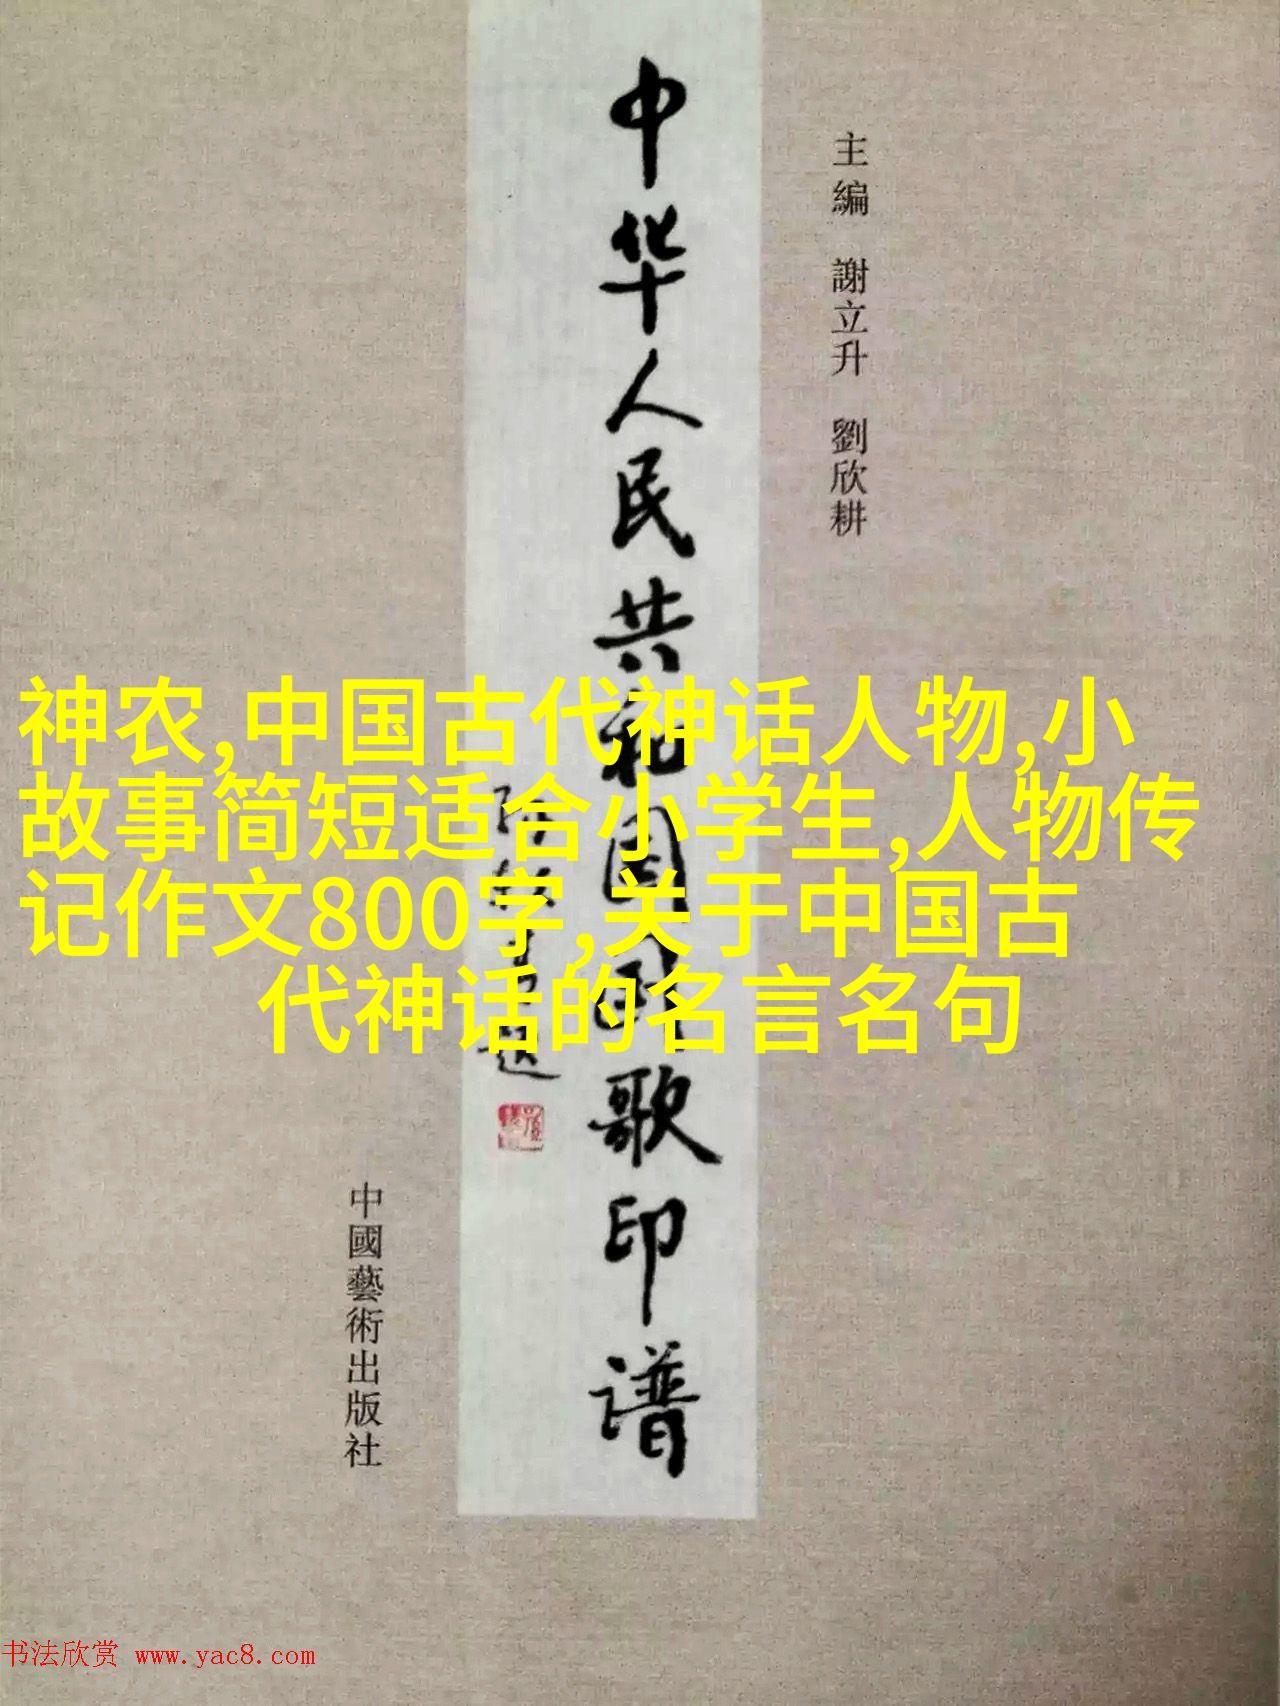 主編 謝立升 劉欣耕
中华人民共和国国歌印谱
中國藝術出版社
神农,中国古代神话人物,小
故事简短适合小学生,人物传
记作文800字,关于中国古
代神话的名言名句
书法欣赏 www.yac8.com